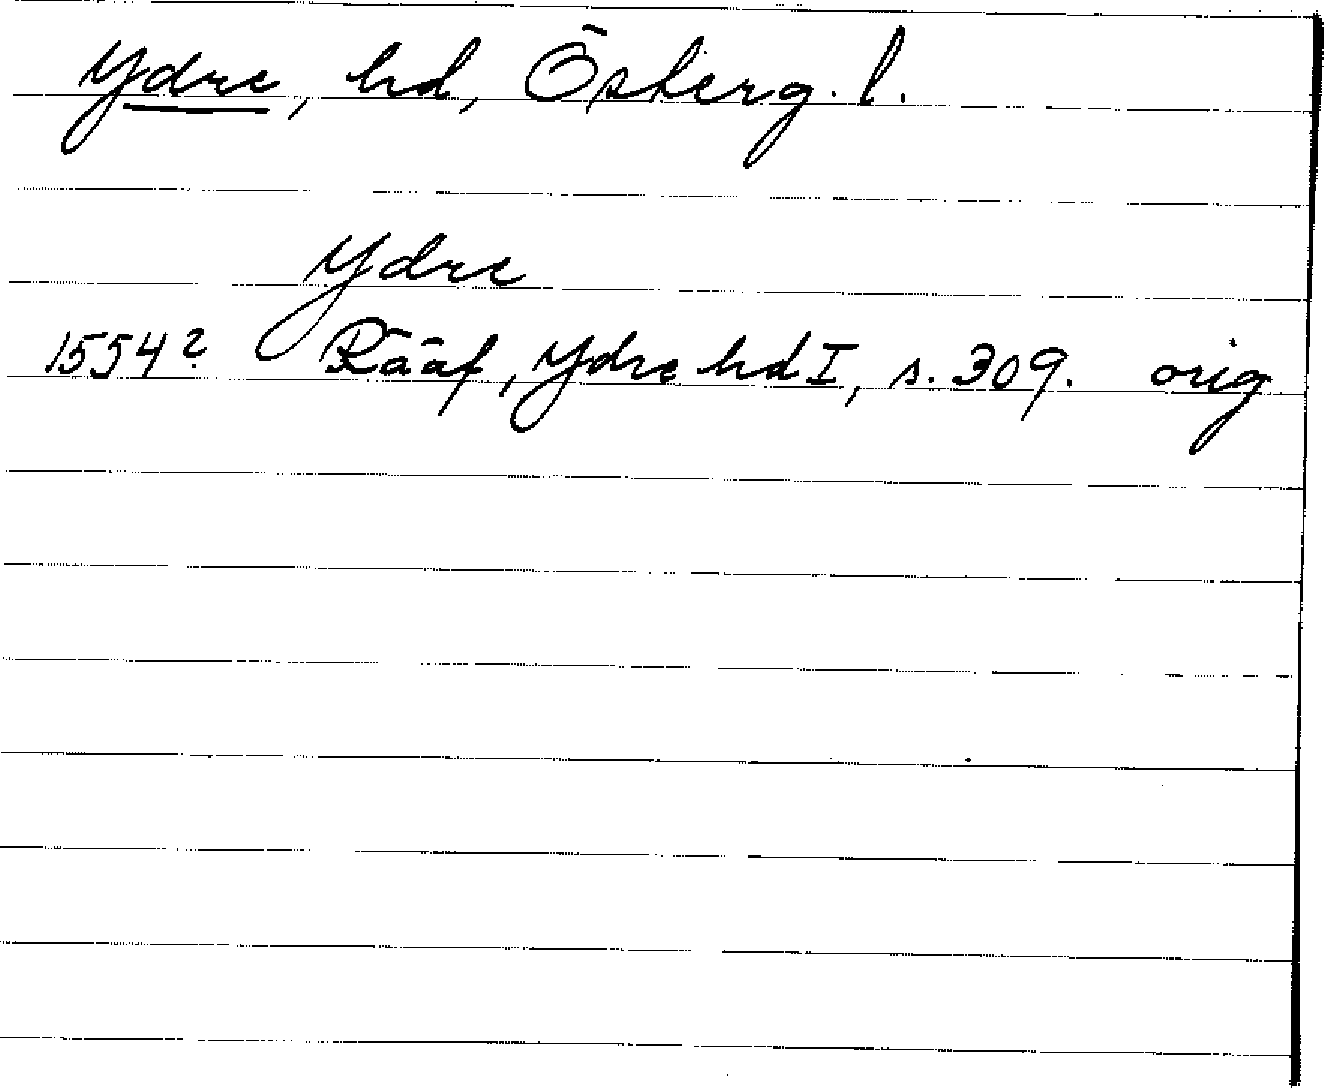 Ydre, hd, Österg. l.
Ydre
1554? Rääf, Ydre hd I, s. 309. orig